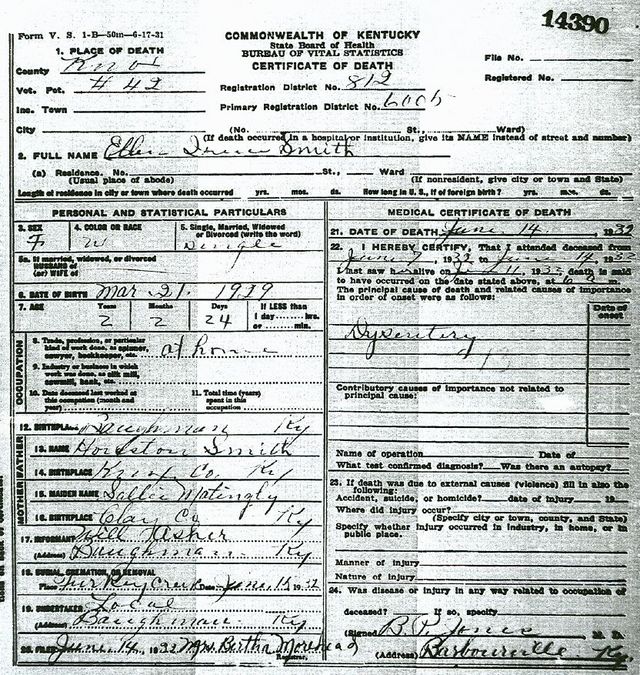 14390
Form V. S. 1-B—50m—6-17-31
COMMONWEALTH OF KENTUCKY
State Board of Health
BUREAU OF VITAL STATISTICS
CERTIFICATE OF DEATH
1. PLACE OF DEATH
County Knox
Vot. Pct. #42
Inc. Town
City (No. St., Ward)
Registration District No. 812
Primary Registration District No.
File No.
Registered No.
(If death occurred in a hospital or institution, give its NAME instead of street and number)
2. FULL NAME Smith
(a) Residence. No. St., Ward
(Usual place of abode) (If nonresident, give city or town and State)
Length of residence in city or town where death occurred yrs. mos. ds. How long in U. S., if of foreign birth? yrs. mos. ds.
PERSONAL AND STATISTICAL PARTICULARS
3. SEX F
4. COLOR OR RACE W
5. Single, Married, Widowed or Divorced (write the word) Single
5a. If married, widowed, or divorced
HUSBAND of
(or) WIFE of
6. DATE OF BIRTH Mar 21 1929
7. AGE Years 2 Months 2 Days 24 If LESS than 1 day hrs. or min.
OCCUPATION
8. Trade, profession, or particular kind of work done, as spinner, sawyer, bookkeeper, etc. at home
9. Industry or business in which work was done, as silk mill, sawmill, bank, etc.
10. Date deceased last worked at this occupation (month and year)
11. Total time (years) spent in this occupation
12. BIRTHPLACE Baughman Ky
FATHER
13. NAME Houston Smith
14. BIRTHPLACE Knox Co. Ky
MOTHER
15. MAIDEN NAME Sallie Matingly
16. BIRTHPLACE Clay Co Ky
17. INFORMANT Will
(Address) Baughman Ky
18. BURIAL, CREMATION, OR REMOVAL
Place Turkey Creek Date June 1932
19. UNDERTAKER Local
Baughman Ky
20. FILED June 14, 1932 Mrs. Bertha Morehead
Registrar.
MEDICAL CERTIFICATE OF DEATH
21. DATE OF DEATH June 14 1932
22. I HEREBY CERTIFY, That I attended deceased from
June 7, 1932 to June 14 1932
I last saw her alive on June 11, 1932 death is said
to have occurred on the date stated above, at m.
The principal cause of death and related causes of importance in order of onset were as follows:
Date of onset
Dysentery
Contributory causes of importance not related to principal cause:
Name of operation Date of
What test confirmed diagnosis? Was there an autopsy?
23. If death was due to external causes (violence) fill in also the following:
Accident, suicide, or homicide? date of injury 19
Where did injury occur?
(Specify city or town, county, and State)
Specify whether injury occurred in industry, in home, or in public place.
Manner of injury
Nature of injury
24. Was disease or injury in any way related to occupation of
deceased? If so, specify
(Signed) B. P. Jones M. D.
(Address) Barbourville Ky.